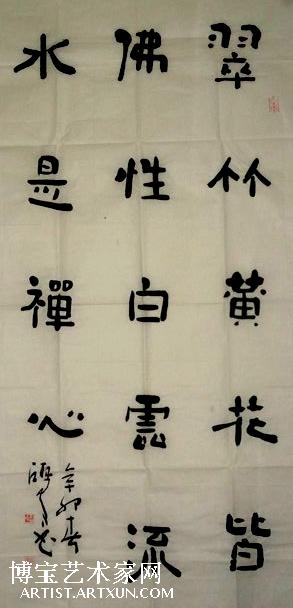 翠竹黄花皆
佛性白雲流
水是禪心
辛卯春
博宝艺术家网
ARTIST.ARTXUN.COM